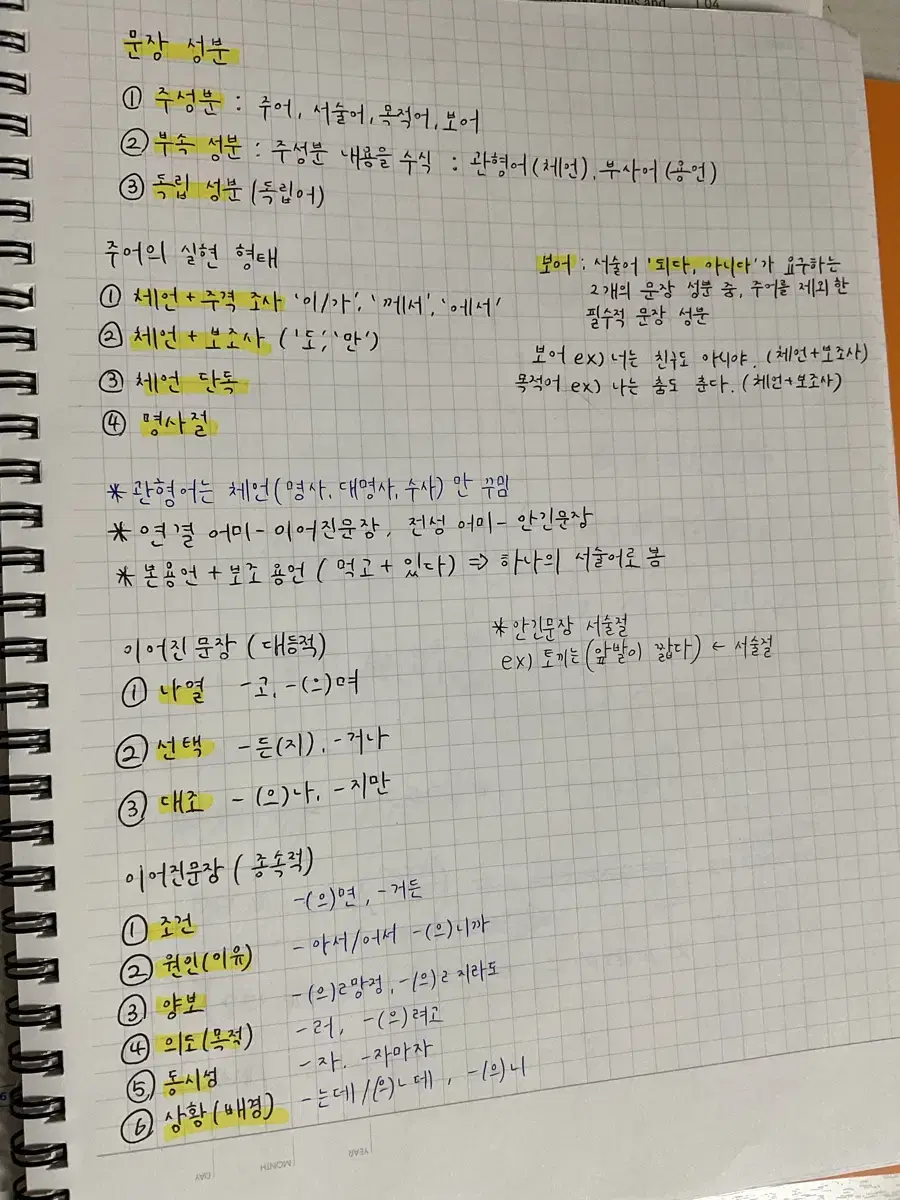 문장 성분
① 주성분 : 주어, 서술어, 목적어, 보어
② 부속 성분 : 주성분 내용을 수식 : 관형어(체언), 부사어(용언)
③ 독립 성분(독립어)
주어의 실현 형태
① 체언+주격 조사 '이/가', '께서', '에서'
② 체언+보조사 ('도', '만')
③ 체언 단독
④ 명사절
보어 : 서술어 '되다, 아니다'가 요구하는
2개의 문장 성분 중, 주어를 제외한
필수적 문장 성분
보어 ex) 너는 친구도 아니야. (체언+보조사)
목적어 ex) 나는 춤도 춘다. (체언+보조사)
* 관형어는 체언(명사, 대명사, 수사)만 꾸밈
* 연결 어미-이어진문장, 전성 어미-안긴문장
* 본용언+보조 용언(먹고+있다) ⇒ 하나의 서술어로 봄
이어진 문장(대등적)
① 나열 -고, -(으)며
② 선택 -든(지), -거나
③ 대조 -(으)나, -지만
*안긴문장 서술절
ex) 토끼는(앞발이 짧다) ← 서술절
이어진문장(종속적)
① 조건 -(으)면, -거든
② 원인(이유) -아서/어서 -(으)니까
③ 양보 -(으)ㄹ망정, -(으)ㄹ지라도
④ 의도(목적) -러, -(으)려고
⑤ 동시성 -자, -자마자
⑥ 상황(배경) -는데/(으)ㄴ데, -(으)니
DAY MONTH YEAR